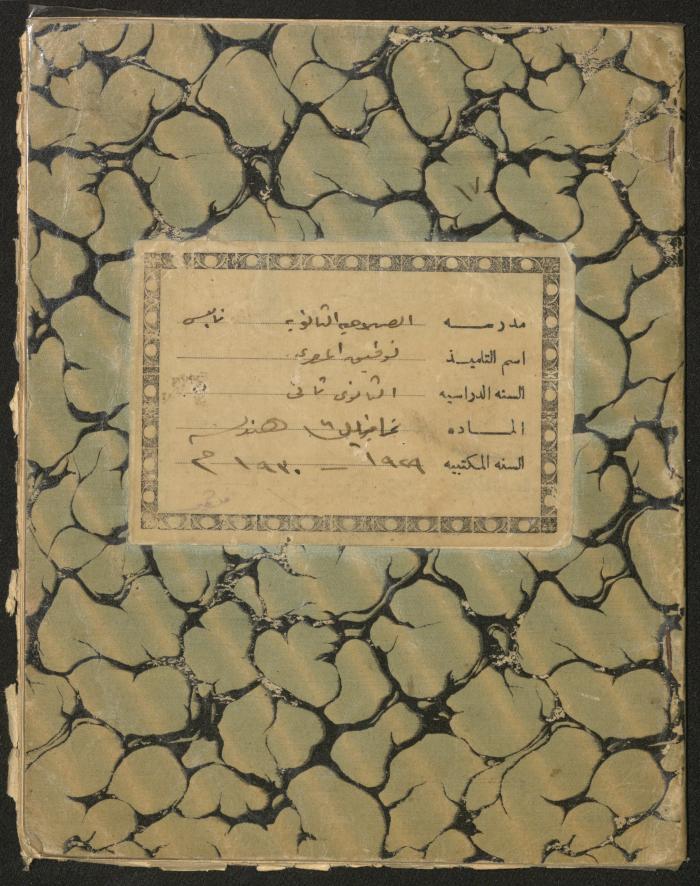 ١٧
مدرسة الصلاحية الثانوية نابلس
اسم التلميذ توفيق المصري
السنه الدراسيه الثانوي ثاني
المادة هندسه
السنه المكتبيه ١٩٢٩ – ١٩٣٠ م